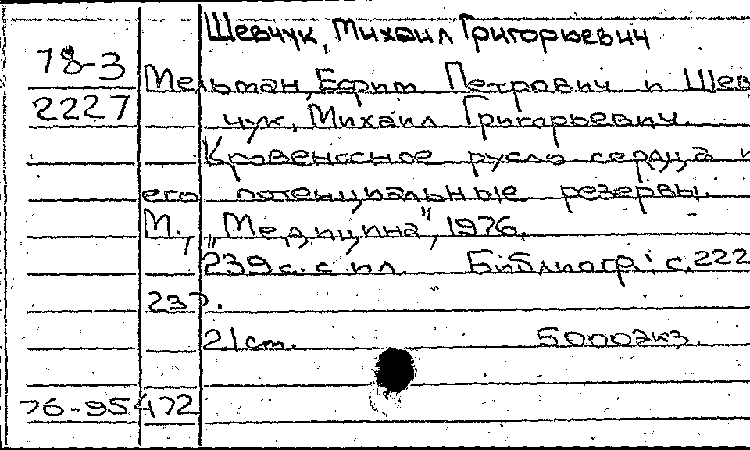 Шевчук, Михаил Григорьевич
78-3
Мельман, Ефим Петрович и Шев
2227
чук, Михаил Григорьевич.
Кровеносное русло сердца и
его потенциальные резервы.
М., „Медицина", 1976.
239 с. с ил. Библиогр.: с. 222
237.
21 см. 5000 экз.
76-95472